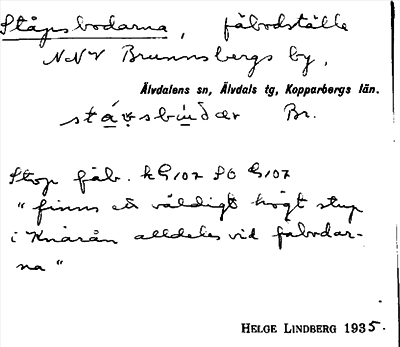 Ståpsbodarna, fäbodställe
NNV Brunnsbergs by,
Älvdalens sn, Älvdals tg, Kopparbergs län.
Br.
Stop fäb.
"finns ett väldigt högt stup
i Knärån alldeles vid fäbodar-
na"
HELGE LINDBERG 1935.